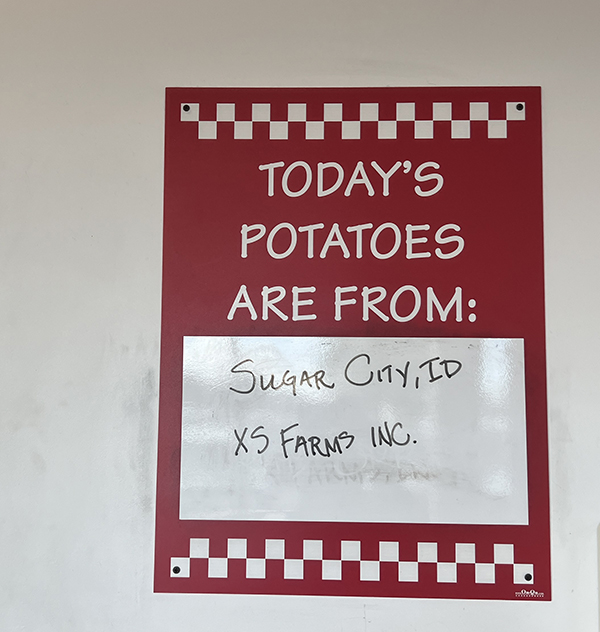 TODAY'S
POTATOES
ARE FROM:
SUGAR CITY, ID
XS FARMS INC.